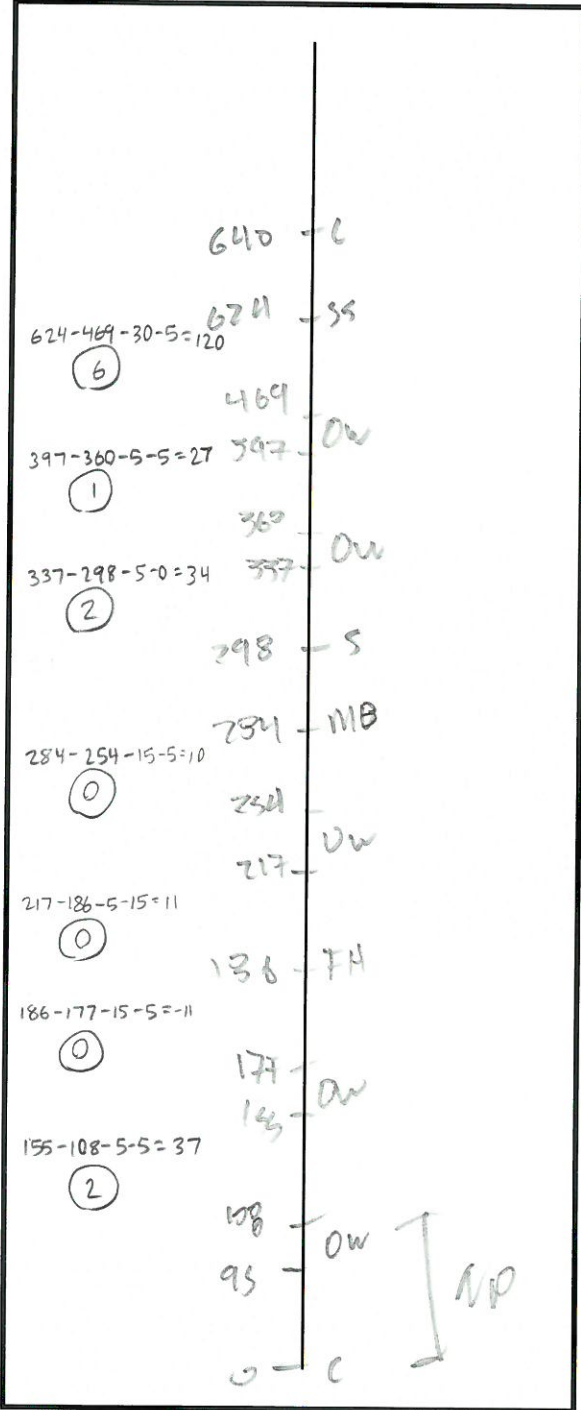 640 C
624 SS
624-469-30-5=120
6
469
OW
397-360-5-5=27 397
1
360
OW
337-298-5-0=34 337
2
298 S
284 MB
284-254-15-5=10
0
254
OW
217
217-186-5-15=11
0
186 FH
186-177-15-5=-11
0
177
OW
155
155-108-5-5=37
2
108
OW
95
NP
0 C